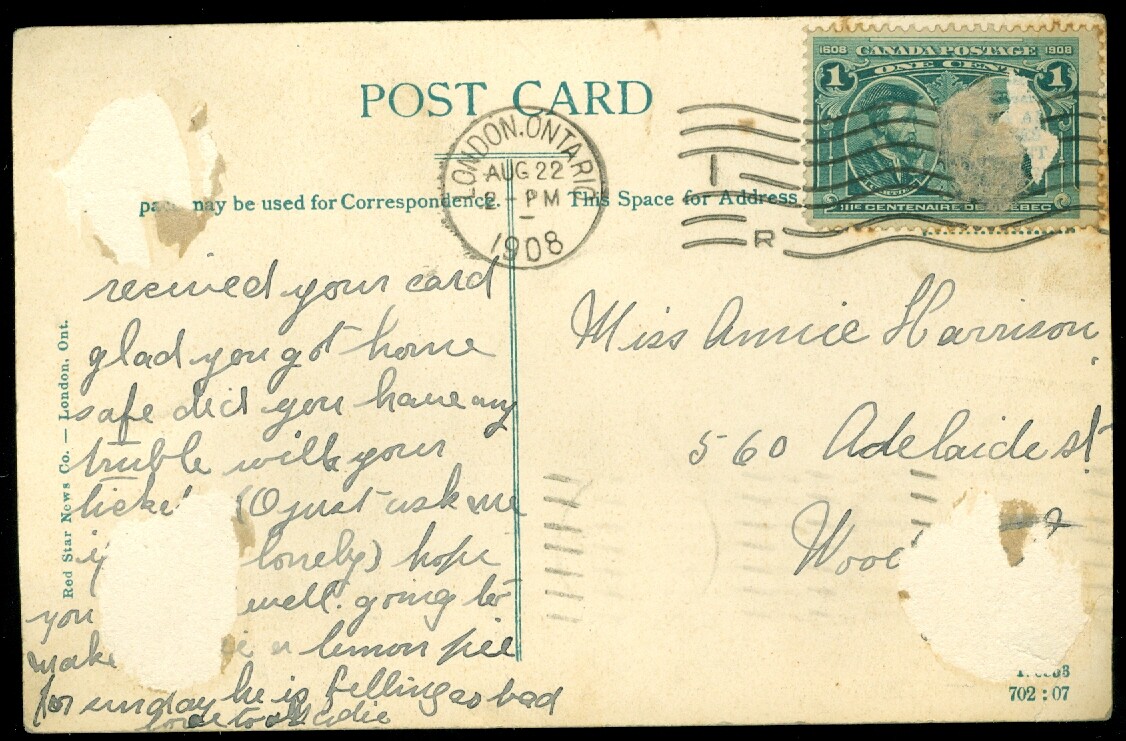 1608 CANADA POSTAGE 1908
ONE CENT
1 1
IIIE CENTENAIRE DE QUEBEC
POST CARD
LONDON.ONTARIO
AUG 22
2-PM
1908
I
R
may be used for Correspondence.
This Space for Address
recived your card
glad you got home
safe did you have any
truble with your
ticke
(O just ask me
lonely) hope
you well. going to
make a lemon pie
for unday he is felling so bad
love to
Miss Annie Harrison
560 Adelaide st
Wood
Red Star News Co. — London, Ont.
702:07